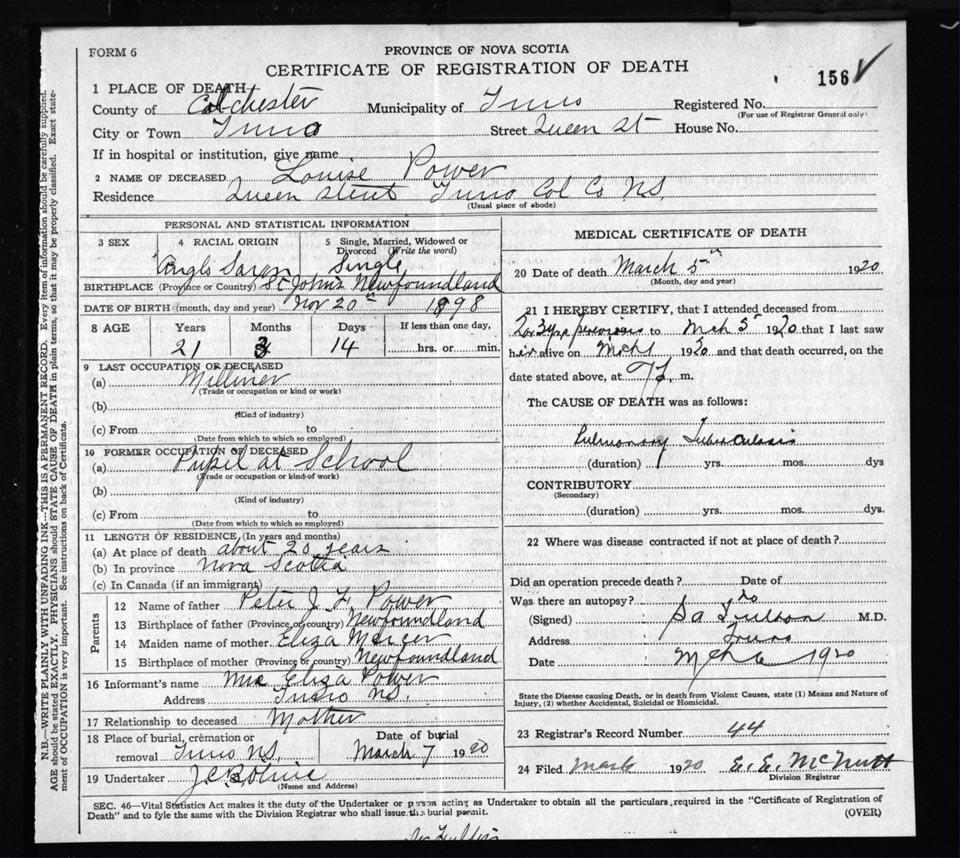 FORM 6
PROVINCE OF NOVA SCOTIA
CERTIFICATE OF REGISTRATION OF DEATH
156
1 PLACE OF DEATH
County of Colchester Municipality of Truro Registered No.
(For use of Registrar General only)
City or Town Truro Street Queen St House No.
If in hospital or institution, give name
2 NAME OF DECEASED Louise Power
Residence Queen Street Truro Col Co N.S.
(Usual place of abode)
PERSONAL AND STATISTICAL INFORMATION
3 SEX 4 RACIAL ORIGIN 5 Single, Married, Widowed or Divorced (Write the word)
Anglo Saxon Single
BIRTHPLACE (Province or Country) St John's Newfoundland
DATE OF BIRTH (month, day and year) Nov 20th 1898
8 AGE Years Months Days If less than one day,
21 3 14 hrs. or min.
9 LAST OCCUPATION OF DECEASED
(a) Milliner
(Trade or occupation or kind or work)
(b)
(Kind of industry)
(c) From to
(Date from which to which so employed)
10 FORMER OCCUPATION OF DECEASED
(a) Pupil at School
(Trade or occupation or kind of work)
(b)
(Kind of industry)
(c) From to
(Date from which to which so employed)
11 LENGTH OF RESIDENCE (In years and months)
(a) At place of death about 20 years
(b) In province Nova Scotia
(c) In Canada (if an immigrant)
Parents
12 Name of father Peter J. F. Power
13 Birthplace of father (Province or country) Newfoundland
14 Maiden name of mother Eliza Mercer
15 Birthplace of mother (Province or country) Newfoundland
16 Informant's name Mrs Eliza Power
Address Truro N.S.
17 Relationship to deceased Mother
18 Place of burial, cremation or Date of burial
removal Truro N.S. March 7 1920
19 Undertaker
(Name and Address)
MEDICAL CERTIFICATE OF DEATH
20 Date of death March 5th 1920
(Month, day and year)
21 I HEREBY CERTIFY, that I attended deceased from
2 or 3 yrs previous to Mch 5 1920 that I last saw
her alive on Mch 1920 and that death occurred, on the
date stated above, at m.
The CAUSE OF DEATH was as follows:
Pulmonary Tuberculosis
(duration) yrs. mos. dys
CONTRIBUTORY
(Secondary)
(duration) yrs. mos. dys.
22 Where was disease contracted if not at place of death?
Did an operation precede death? Date of
Was there an autopsy? no
(Signed) M.D.
Address Truro
Date Mch 1920
State the Disease causing Death, or in death from Violent Causes, state (1) Means and Nature of
Injury, (2) whether Accidental, Suicidal or Homicidal.
23 Registrar's Record Number 44
24 Filed 1920 E. E. McNutt
Division Registrar
SEC. 46—Vital Statistics Act makes it the duty of the Undertaker or person acting as Undertaker to obtain all the particulars required in the "Certificate of Registration of
Death" and to fyle the same with the Division Registrar who shall issue the burial permit. (OVER)
N.B.—WRITE PLAINLY WITH UNFADING INK—THIS IS A PERMANENT RECORD. Every item of information should be carefully supplied.
AGE should be stated EXACTLY. PHYSICIANS should STATE CAUSE OF DEATH in plain terms, so that it may be properly classified. Exact state-
ment of OCCUPATION is very important. See instructions on back of Certificate.